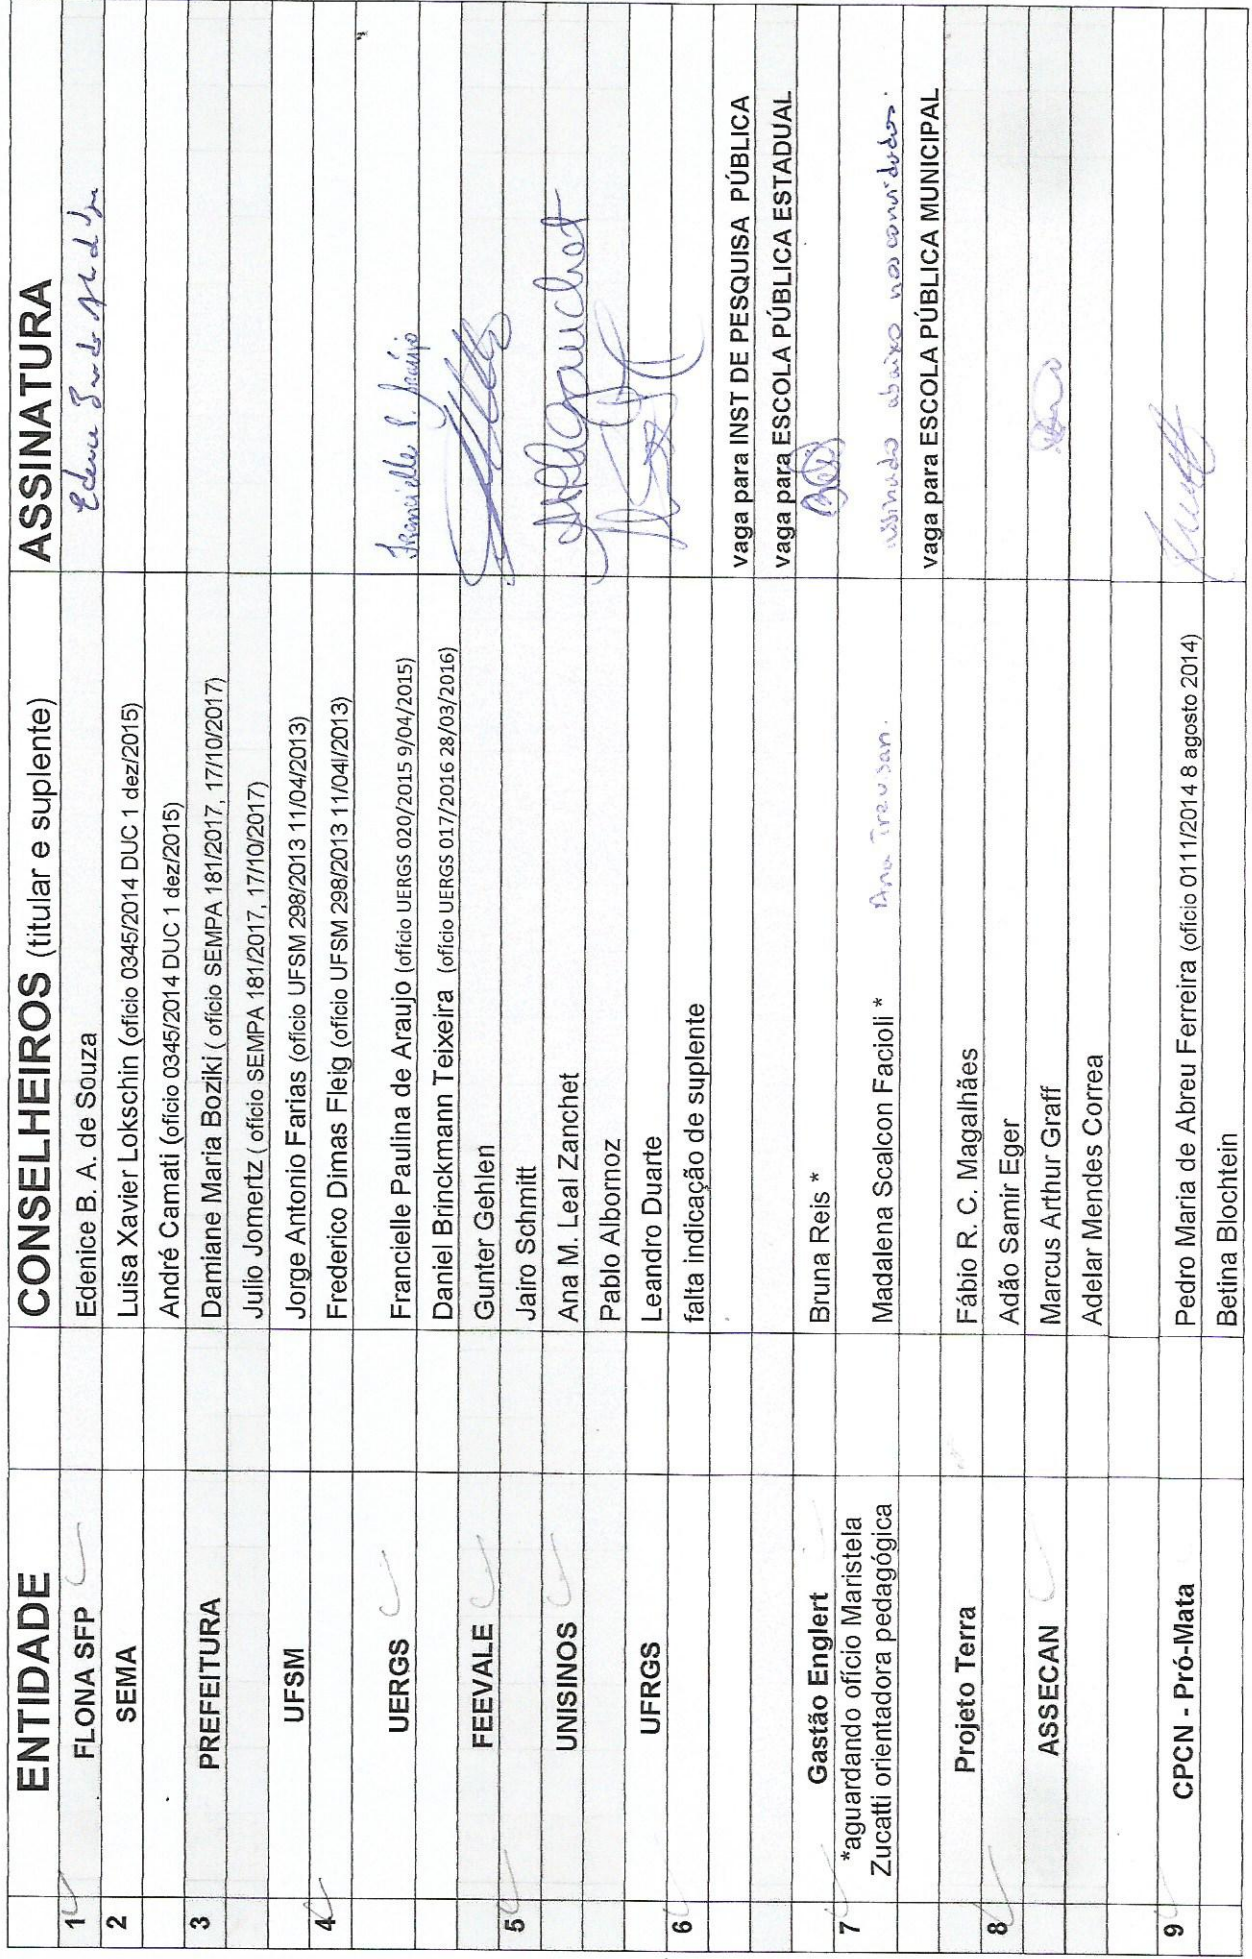 ENTIDADE CONSELHEIROS (titular e suplente) ASSINATURA
1 FLONA SFP Edenice B. A. de Souza
2 SEMA Luisa Xavier Lokschin (ofício 0345/2014 DUC 1 dez/2015)
André Camati (ofício 0345/2014 DUC 1 dez/2015)
3 PREFEITURA Damiane Maria Boziki ( ofício SEMPA 181/2017, 17/10/2017)
Julio Jomertz ( ofício SEMPA 181/2017, 17/10/2017)
UFSM Jorge Antonio Farias (ofício UFSM 298/2013 11/04/2013)
4 Frederico Dimas Fleig (ofício UFSM 298/2013 11/04I/2013)
UERGS Francielle Paulina de Araujo (ofício UERGS 020/2015 9/04/2015) Francielle P. Araújo
Daniel Brinckmann Teixeira (ofício UERGS 017/2016 28/03/2016)
FEEVALE Gunter Gehlen
5 Jairo Schmitt
UNISINOS Ana M. Leal Zanchet
Pablo Albornoz
UFRGS Leandro Duarte
6 falta indicação de suplente
vaga para INST DE PESQUISA PÚBLICA
vaga para ESCOLA PÚBLICA ESTADUAL
Gastão Englert Bruna Reis *
7 *aguardando ofício Maristela
Zucatti orientadora pedagógica Madalena Scalcon Facioli * Ana Trevisan. assinado abaixo nos convidados.
vaga para ESCOLA PÚBLICA MUNICIPAL
Projeto Terra Fábio R. C. Magalhães
8 Adão Samir Eger
ASSECAN Marcus Arthur Graff
Adelar Mendes Correa
9 CPCN - Pró-Mata Pedro Maria de Abreu Ferreira (ofício 0111/2014 8 agosto 2014)
Betina Blochtein